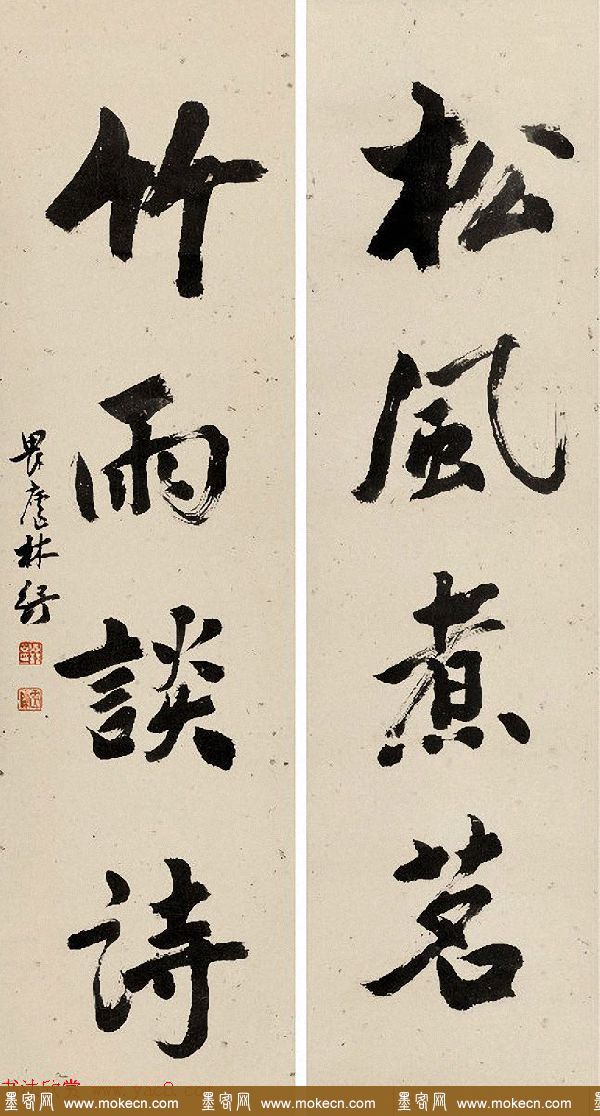 松風煮茗
竹雨談詩
畏廬林紓
墨客网 www.mokecn.com 墨客网 www.mokecn.com 墨客网 www.mokecn.com